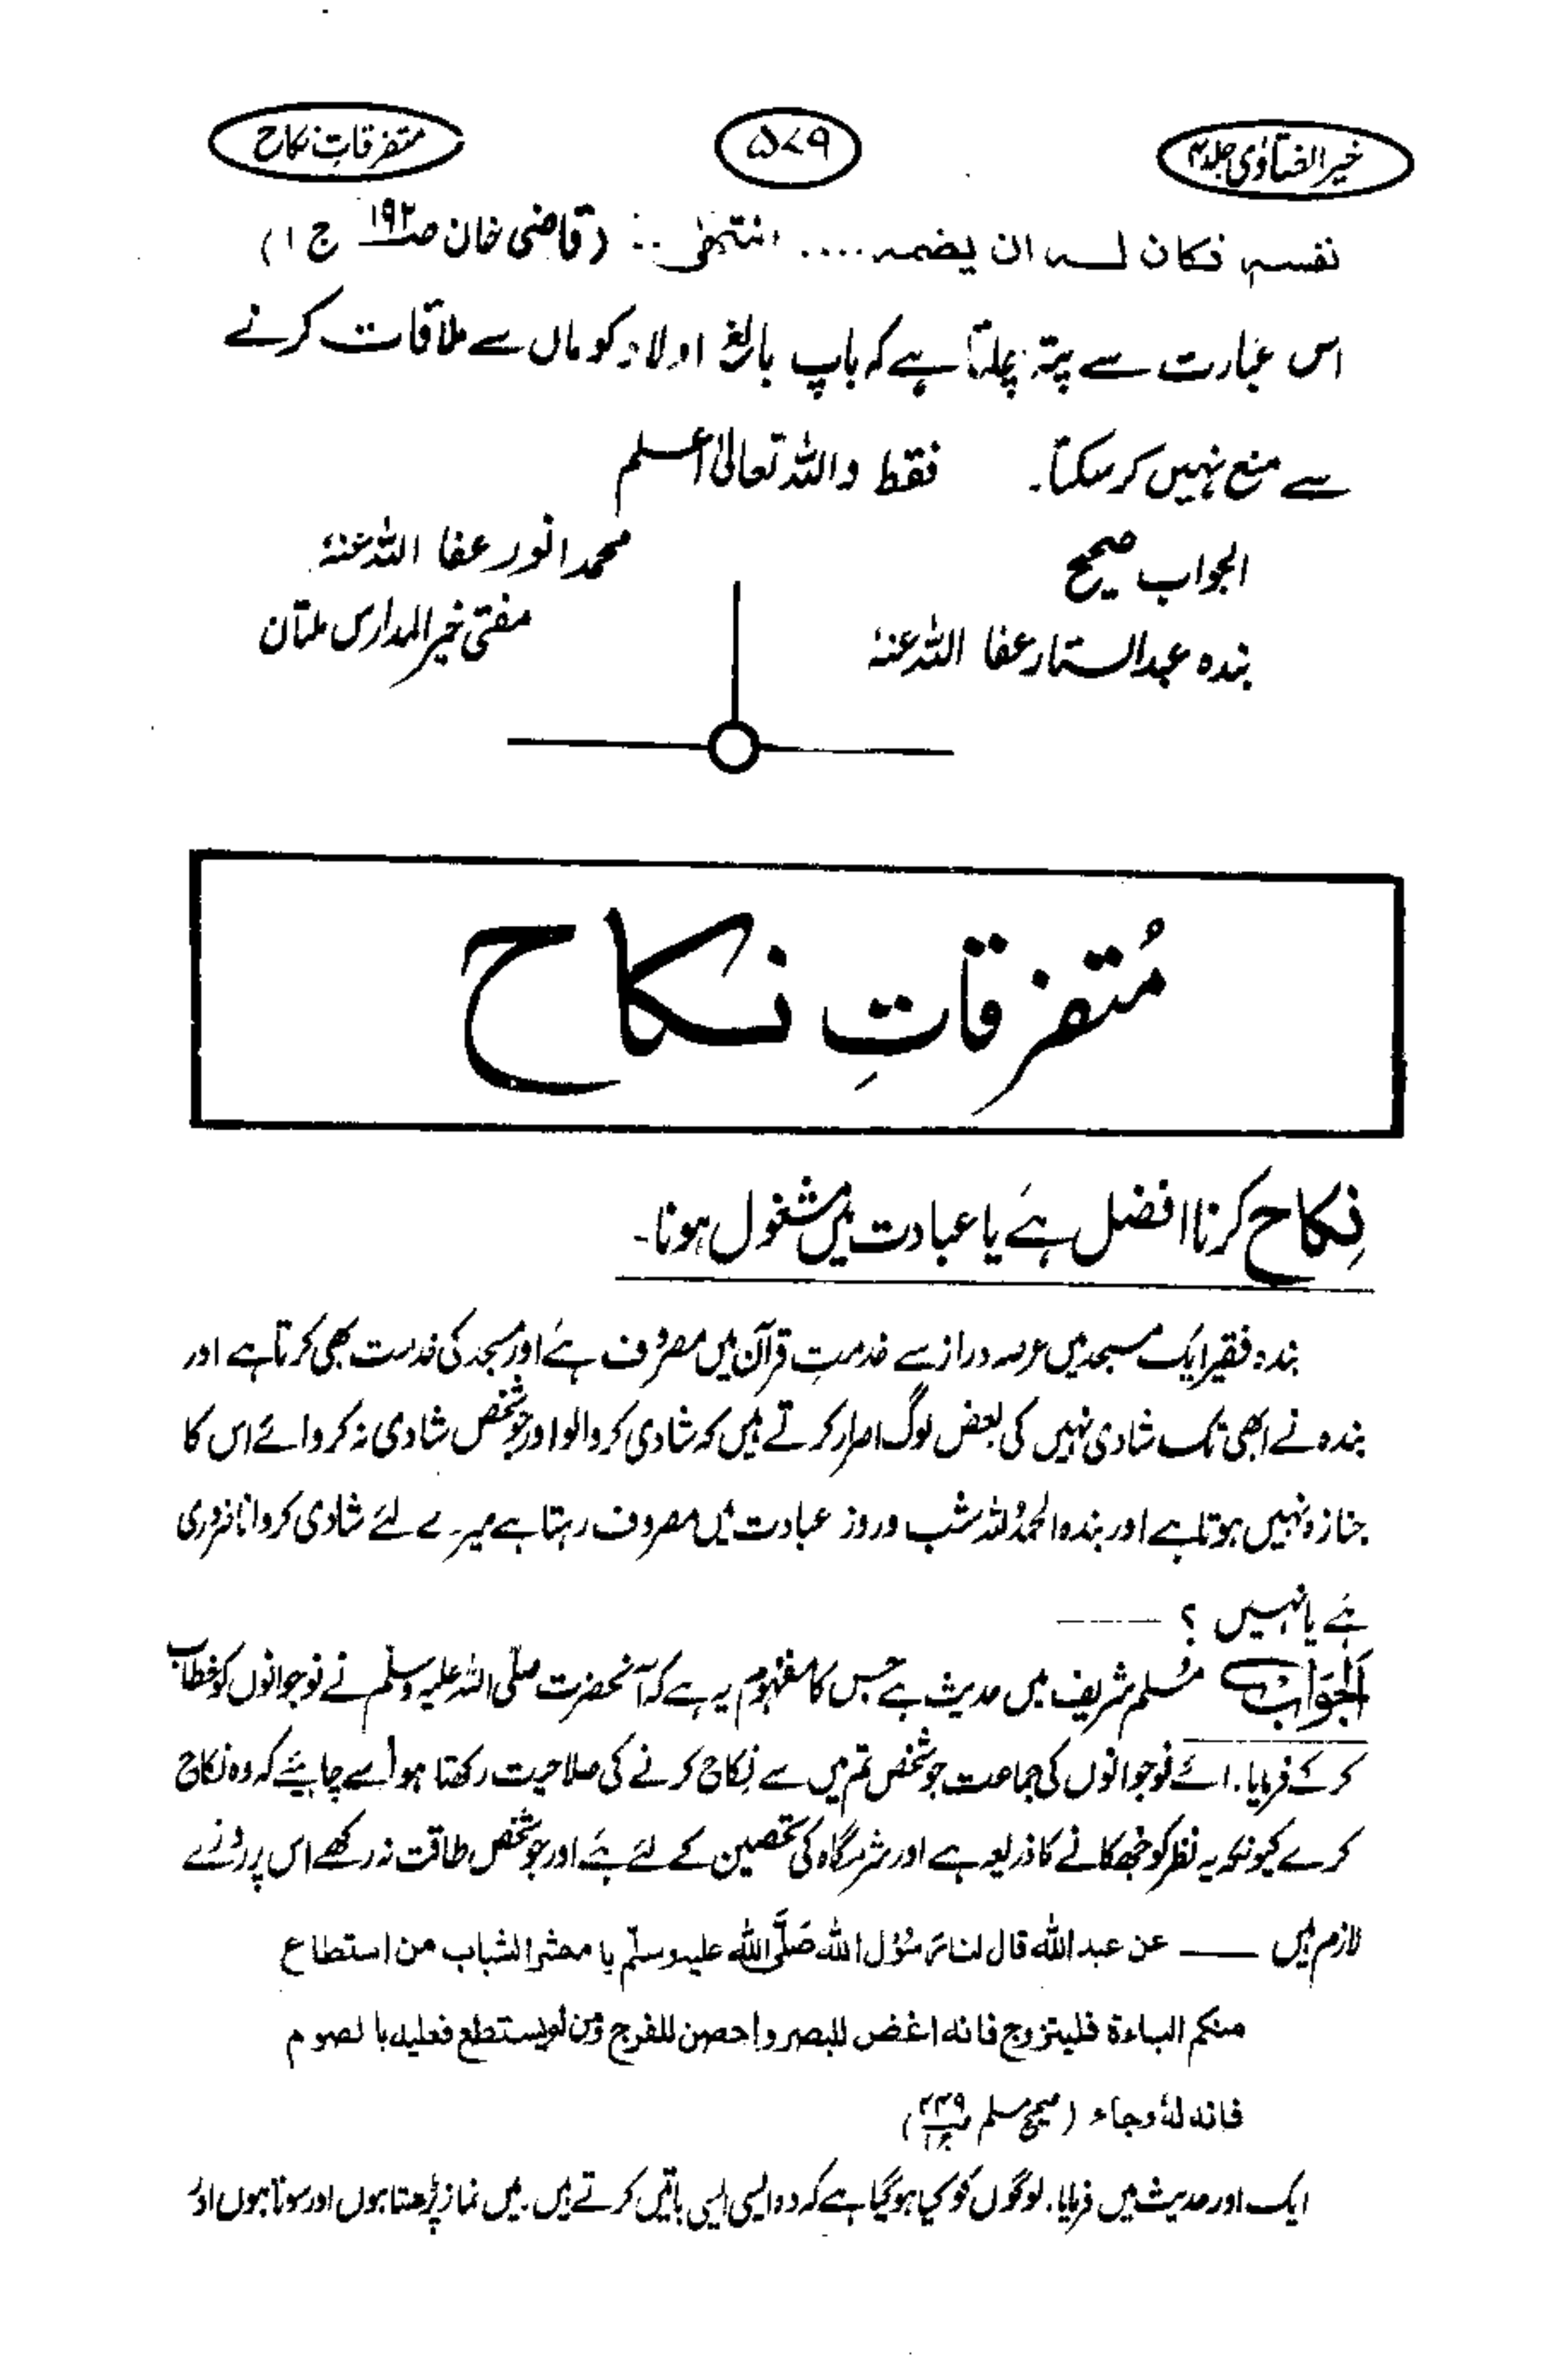 خیر الفتاوٰی جلد ۴
۵۷۹
متفرقاتِ نکاح
نفسہ فکان لہ ان یضمہ .... انتھٰی :: (قاضی خان صـ۱۹۲ ج ۱)
اس عبارت سے پتہ چلتا ہے کہ باپ بالغ اولاد کو ماں سے ملاقات کرنے
سے منع نہیں کر سکتا۔ فقط واللہ تعالیٰ اعلم
الجواب صحیح
بندہ عبدالستار عفا اللہ عنہٗ
محمد انور عفا اللہ عنہٗ
مفتی خیر المدارس ملتان
مُتفرقاتِ نکاح
نِکاح کرنا افضل ہے یا عبادت میں مشغول ہونا۔
بندہ فقیر ایک مسجد میں عرصہ دراز سے خدمتِ قرآن میں مصرُوف ہے اور مسجد کی خدمت بھی کرتا ہے اور
بندہ نے ابھی تک شادی نہیں کی بعض لوگ اصرار کرتے ہیں کہ شادی کروالو اور جو شخص شادی نہ کروائے اس کا
جنازہ نہیں ہوتا ہے اور بندہ الحمدُ للہ شب و روز عبادت میں مصروف رہتا ہے میرے لئے شادی کروانا ضروری
ہے یا نہیں ؟ ——
الجَوَاب مُسلم شریف میں حدیث ہے جس کا مفہوم یہ ہے کہ آنحضرت صلّی اللہ علیہ وسلّم نے نوجوانوں کو خطاب
کر کے فرمایا۔ اے نوجوانوں کی جماعت جو شخص تم میں سے نِکاح کرنے کی صلاحیت رکھتا ہو اسے چاہیئے کہ وہ نکاح
کرے کیونکہ یہ نظر کو جُھکانے کا ذریعہ ہے اور شرمگاہ کی تحصین کے لئے ہے اور جو شخص طاقت نہ رکھے اس پر روزے
لازم ہیں —— عن عبد اللہ قال لنا رَسُوْل اللہ صَلَّی اللہ علیہ وسلّم یا معشر الشباب من استطاع
منکم الباءۃ فلیتزوج فانہ اغض للبصر واحصن للفرج ومن لم یستطع فعلیہ بالصوم
فانہ لہٗ وجاء (صحیح مسلم صـ۴۴۹ ج۱)
ایک اور حدیث میں فرمایا۔ لوگوں کو کیا ہو گیا ہے کہ وہ ایسی ایسی باتیں کرتے ہیں۔ میں نماز پڑھتا ہوں اور سوتا ہوں اور